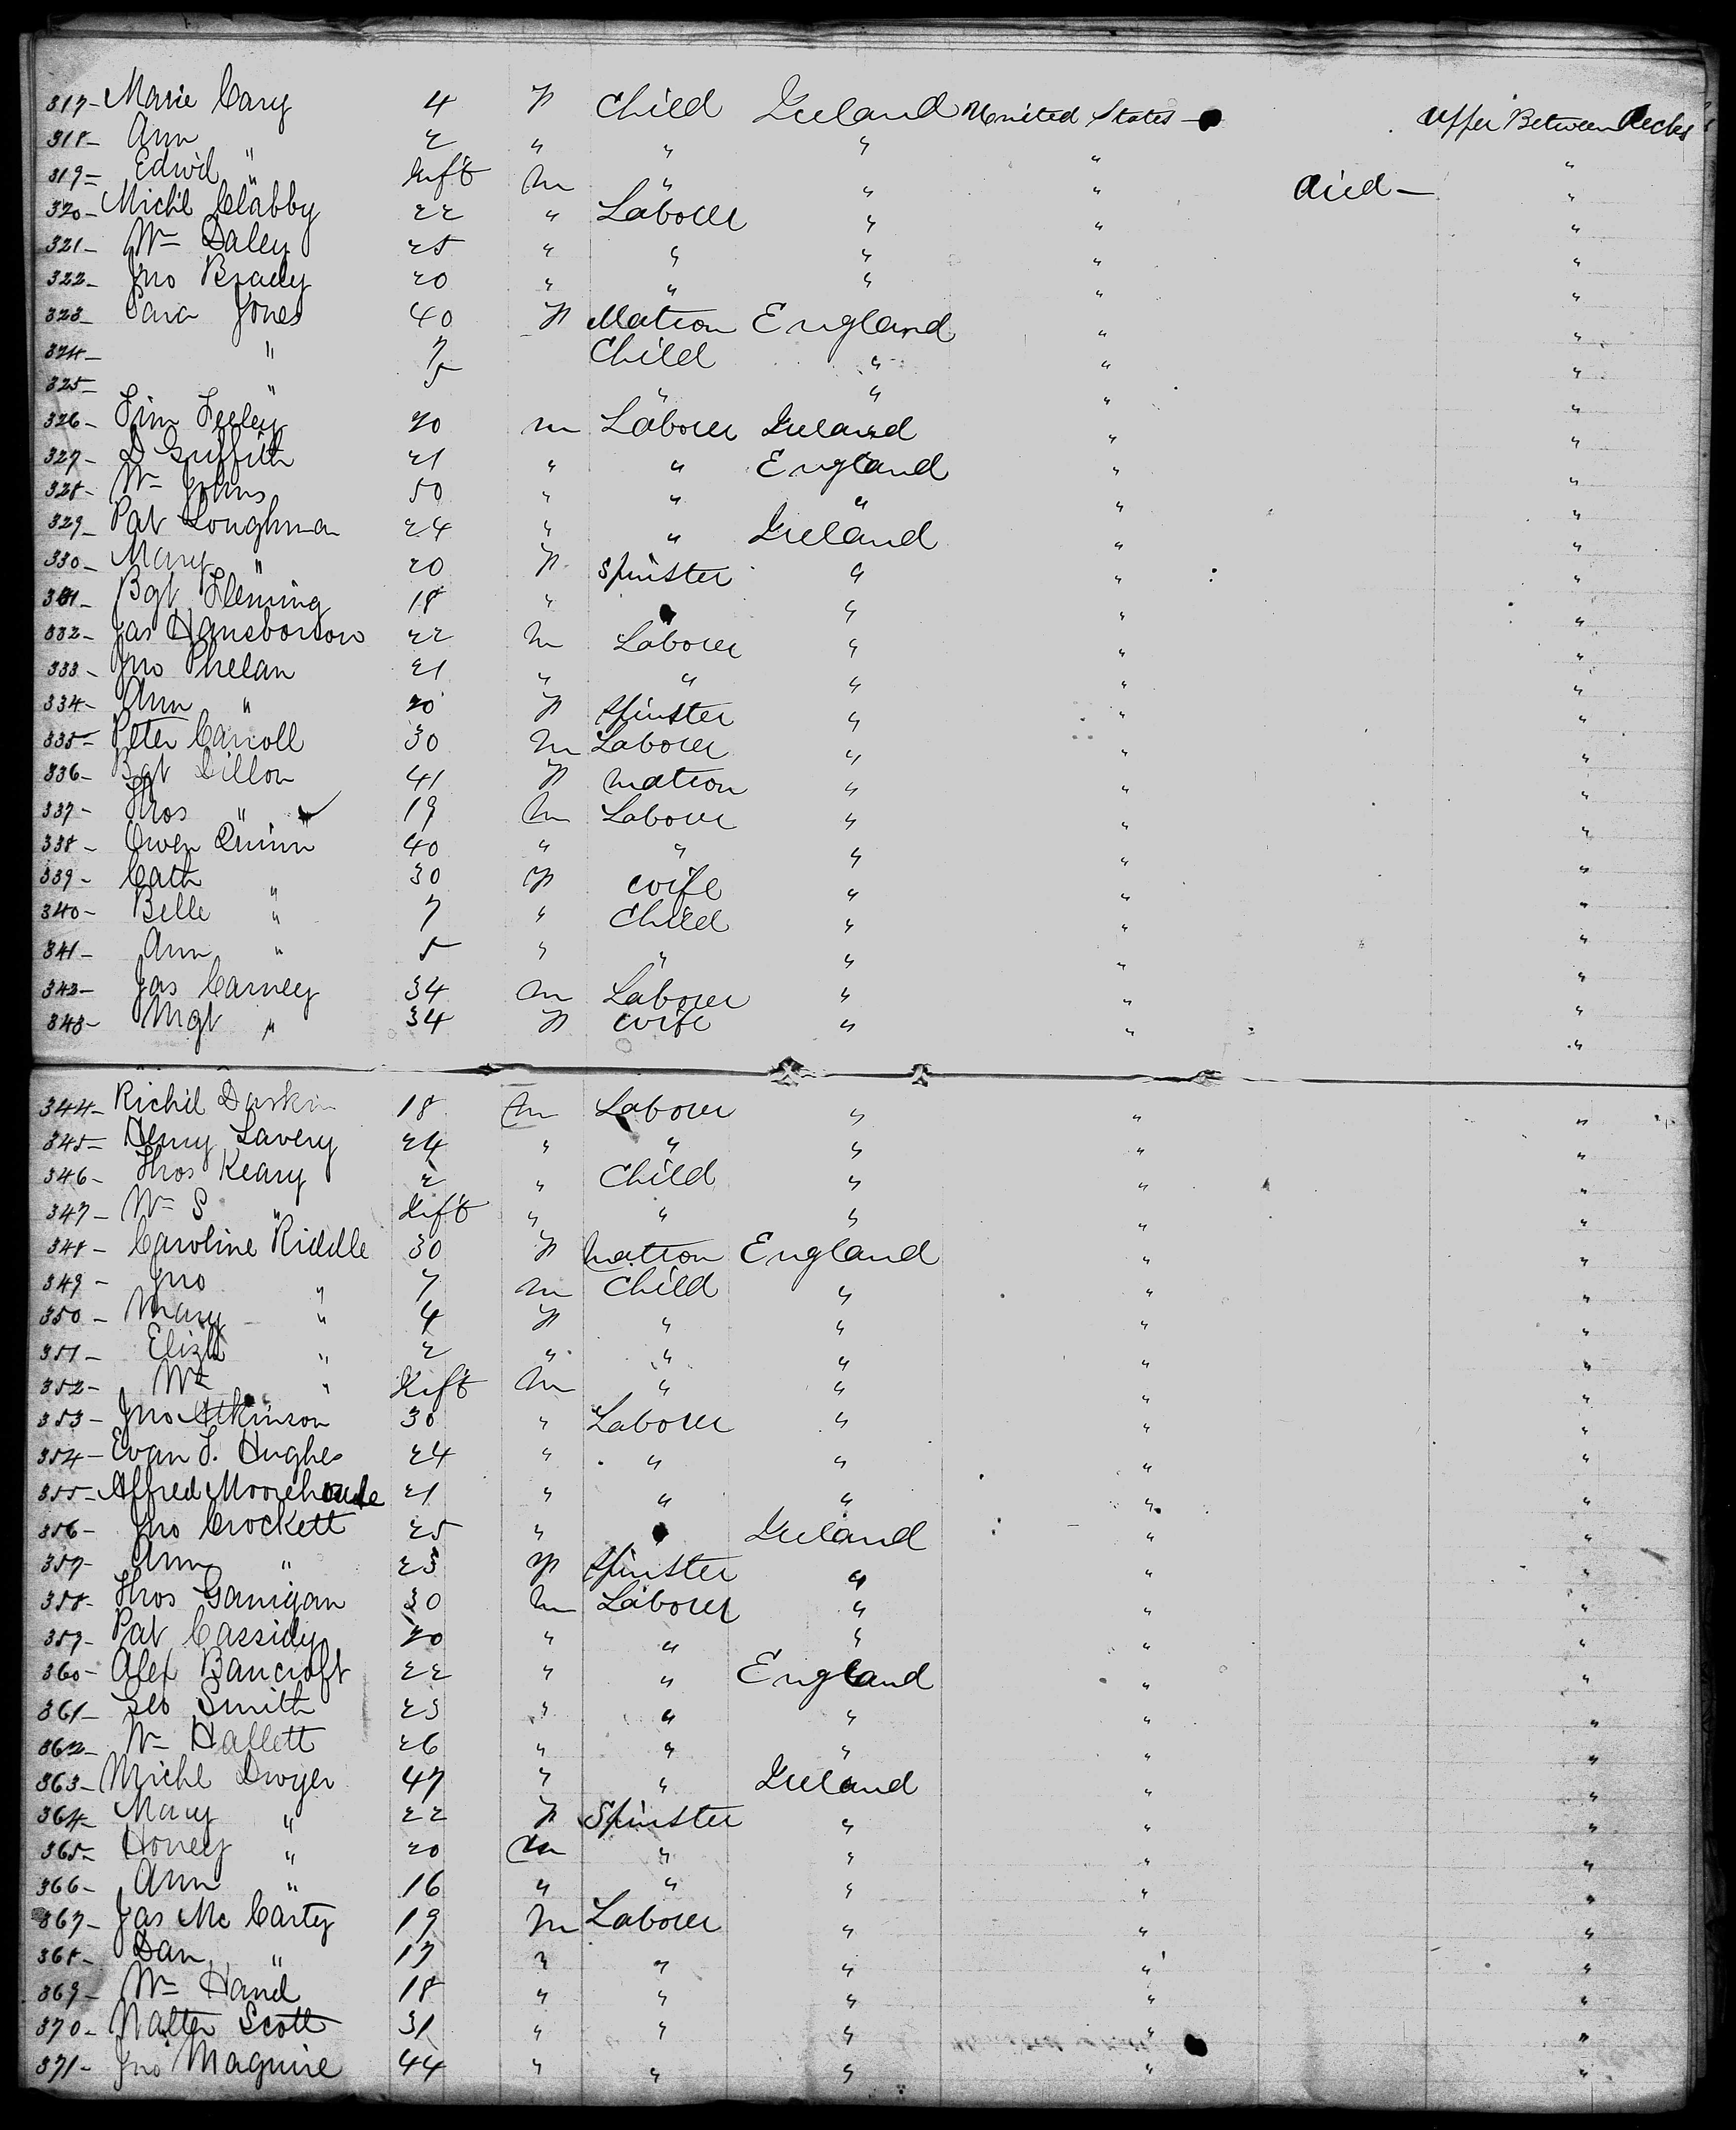 317- Marie Cary 4 F Child Ireland United States - Upper Between Decks
318- Ann 2 " " " " "
319- Edwd " Inft M " " " Died - "
320- Michl Clabby 22 " Laborer " " "
321- Wm Daley 25 " " " " "
322- Jno Brady 20 " " " " "
323- Sara Jones 40 F Matron England " "
324- " 7 Child " " "
325- " 5 " " " "
326- Tim Feeley 20 M Laborer Ireland " "
327- D Griffith 21 " " England " "
328- Wm Johns 50 " " " " "
329- Pat Loughman 24 " " Ireland " "
330- Mary " 20 F Spinster " " "
331- Bgt Fleming 18 " " " "
332- Jas 22 M Laborer " " "
333- Jno Phelan 21 " " " " "
334- Ann " 20 F Spinster " " "
335- Peter Carroll 30 M Laborer " " "
336- Bgt Dillon 41 F Matron " " "
337- Thos " 19 M Laborer " " "
338- Owen Quinn 40 " " " " "
339- Cath " 30 F Wife " " "
340- Belle " 7 " Child " " "
341- Ann " 5 " " " " "
342- Jas Carney 34 M Laborer " " "
343- Mgt " 34 F Wife " " "
344- Richd Durkin 18 M Laborer " " "
345- Henry Lavery 24 " " " " "
346- Thos Keary 2 " Child " " "
347- Wm S " Inft " " " " "
348- Caroline Riddle 30 F Matron England " "
349- Jno " 7 M Child " " "
350- Mary " 4 F " " " "
351- Elizh " 2 " " " " "
352- Wm " Inft M " " " "
353- Jno Atkinson 30 " Laborer " " "
354- Evan T. Hughes 24 " " " " "
355- Alfred Moorehouse 21 " " " " "
356- Jno Crockett 25 " Ireland " "
357- Ann " 23 F Spinster " " "
358- Thos Garrigan 30 M Laborer " " "
359- Pat Cassidy 20 " " " " "
360- Alex Bancroft 22 " " England " "
361- Geo Smith 23 " " " " "
362- Wm Hallett 26 " " " " "
363- Michl Dwyer 47 " " Ireland " "
364- Mary " 22 F Spinster " " "
365- Honey " 20 M " " " "
366- Ann " 16 " " " " "
367- Jas Mc Carty 19 M Laborer " " "
368- Dan " 17 " " " " "
369- Wm Hand 18 " " " " "
370- Walter Scott 31 " " " " "
371- Jno Maguire 44 " " " " "